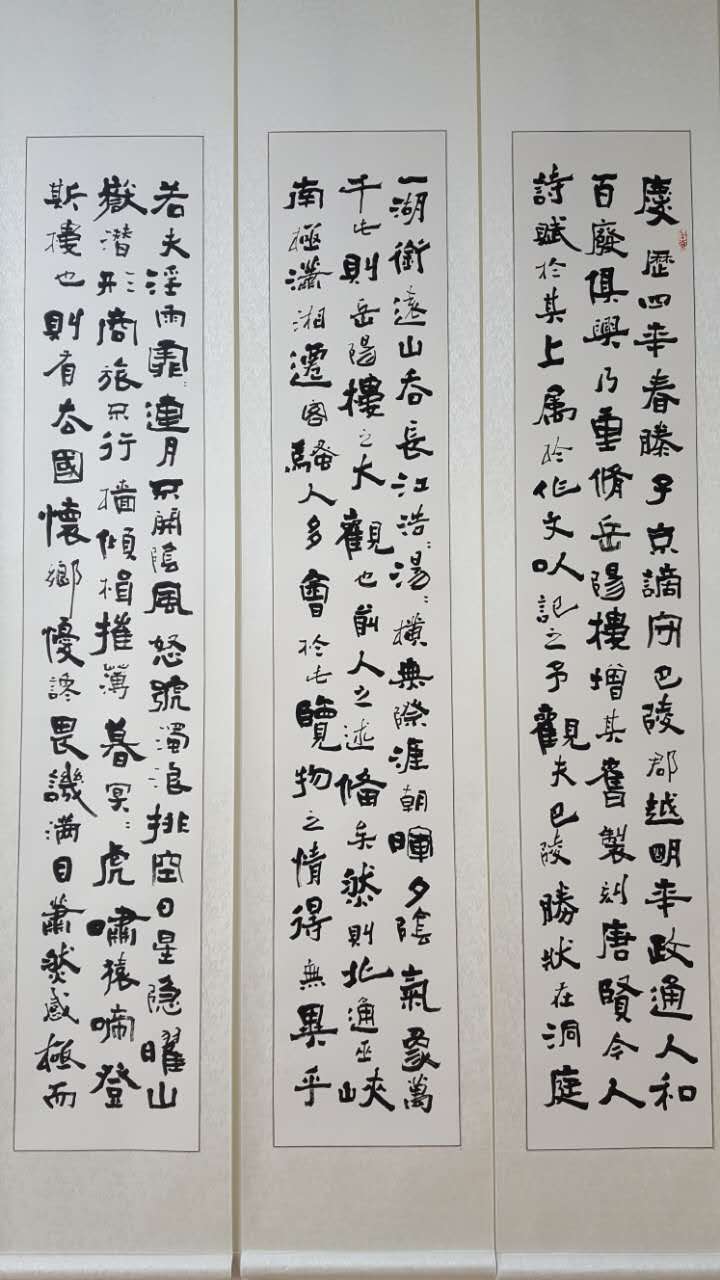 慶歷四年春滕子京謫守巴陵郡越明年政通人和
百廢俱興乃重脩岳陽樓增其舊製刻唐賢今人
詩賦於其上属於作文以記之予觀夫巴陵勝狀在洞庭
一湖銜遠山吞長江浩:湯:橫無際涯朝暉夕陰氣象萬
千此則岳陽樓之大觀也前人之述備矣然則北通巫峽
南極瀟湘遷客騷人多會於此覽物之情得無異乎
若夫淫雨霏:連月不開陰風怒號濁浪排空日星隐曜山
嶽潛形商旅不行檣傾楫摧薄暮冥:虎嘯猿啼登
斯樓也則有去國懷鄉憂讒畏譏滿目蕭然感極而